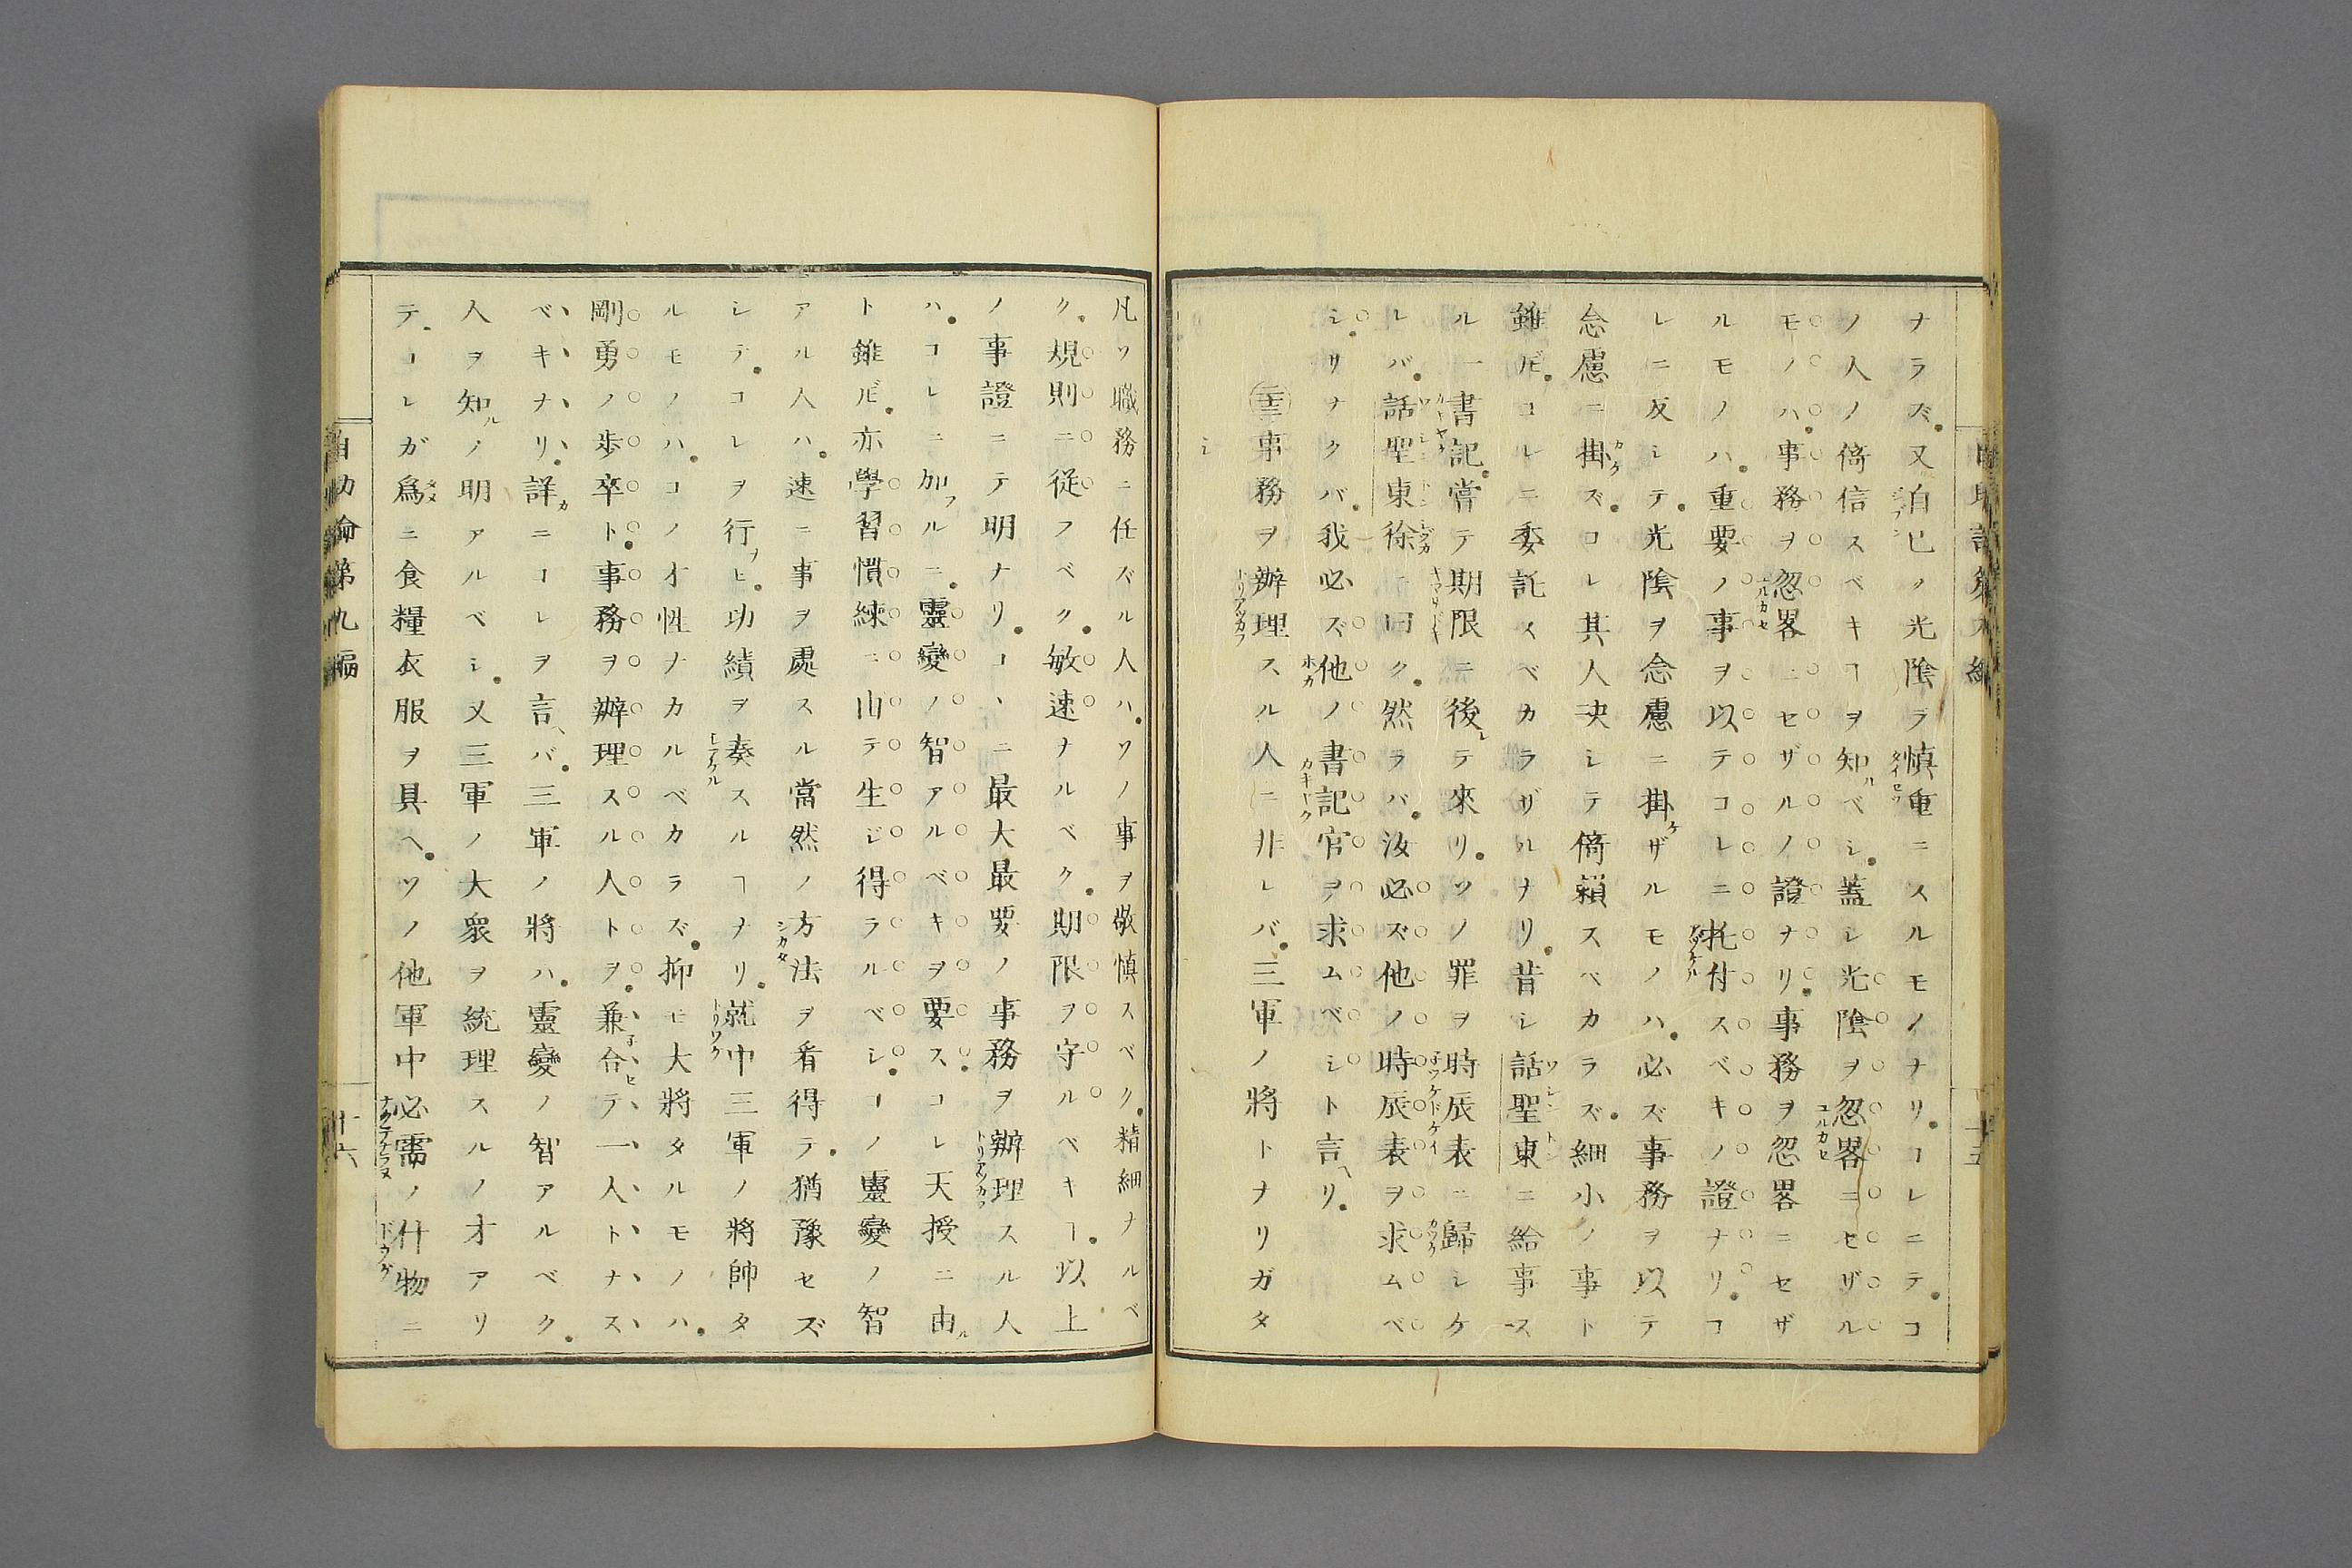 ナラズ又自己ノ光陰ヲ慎重ニスルモノナリコレニテコ
ノ人ノ倚信スベキヿヲ知ルベシ蓋シ光陰ヲ忽畧ニセザル
モノハ事務ヲ忽畧ニセザルノ證ナリ事務ヲ忽畧ニセザ
ルモノハ重要ノ事ヲ以テコレニ托付スベキノ證ナリコ
レニ反シテ光陰ヲ念慮ニ掛ケザルモノハ必ズ事務ヲ以テ
念慮ニ掛ズコレ其人决シテ倚頼スベカラズ細小ノ事ト
雖ドモコレニ委託スベカラザルナリ昔シ話聖東ニ給事ス
ル一書記嘗テ期限ニ後レテ來リソノ罪ヲ時辰表ニ歸シケ
レバ話聖東徐ニ曰ク然ラバ汝必ズ他ノ時辰表ヲ求ムベ
シサナクバ我必ズ他ノ書記官ヲ求ムベシト言ヘリ
事務ヲ辦理スル人ニ非レバ三軍ノ將トナリガタ
シ
凡ソ職務ニ任ズル人ハソノ事ヲ敬慎スベク精細ナルベ
ク規則ニ從フベク敏速ナルベク期限ヲ守ルベキヿ以上
ノ事證ニテ明ナリコヽニ最大最要ノ事務ヲ辦理スル人
ハコレニ加フルニ靈變ノ智アルベキヲ要スコレ天授ニ由ル
ト雖ドモ亦學習慣練ニ由テ生ジ得ラルベシーノ靈變ノ智
アル人ハ速ニ事ヲ處スル當然ノ方法ヲ看得テ猶豫セズ
シテコレヲ行ヒ功績ヲ奏スルヿナリ就中三軍ノ將帥タ
ルモノハコノ才性ナカルベカラズ抑モ大將タルモノハ
剛勇ノ歩卒ト事務ヲ辦理スル人トヲ兼合セテ一人トナス
ベキナリ詳ニコレヲ言ヘバ三軍ノ將ハ靈變ノ智アルベク
人ヲ知ルノ明アルベシ又三軍ノ大衆ヲ統理スルノ才アリ
テコレガ爲ニ食糧衣服ヲ具ヘソノ他軍中必需ノ什物ニ
自助論第九編
十六